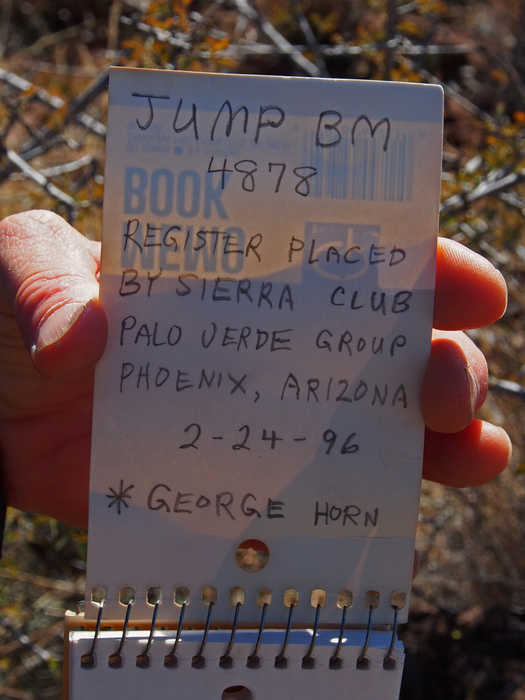 JUMP BM
4878
REGISTER PLACED
BY SIERRA CLUB
PALO VERDE GROUP
PHOENIX, ARIZONA
2-24-96
* GEORGE HORN
BOOK
MEMO